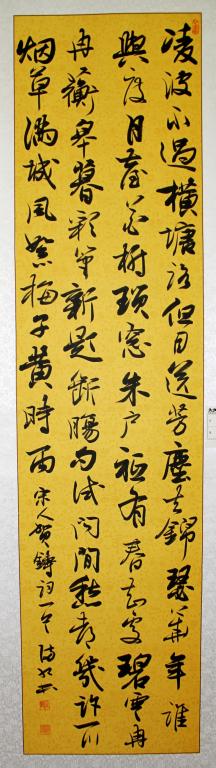 凌波不過橫塘路但目送芳塵去錦瑟華年誰
與度月臺花榭瑣窓朱户祇有春知處碧雲冉
冉蘅皋暮彩筆新題斷腸句试问閒愁都幾許一川
烟草滿城風絮梅子黄時雨
宋人賀鑄詞一首